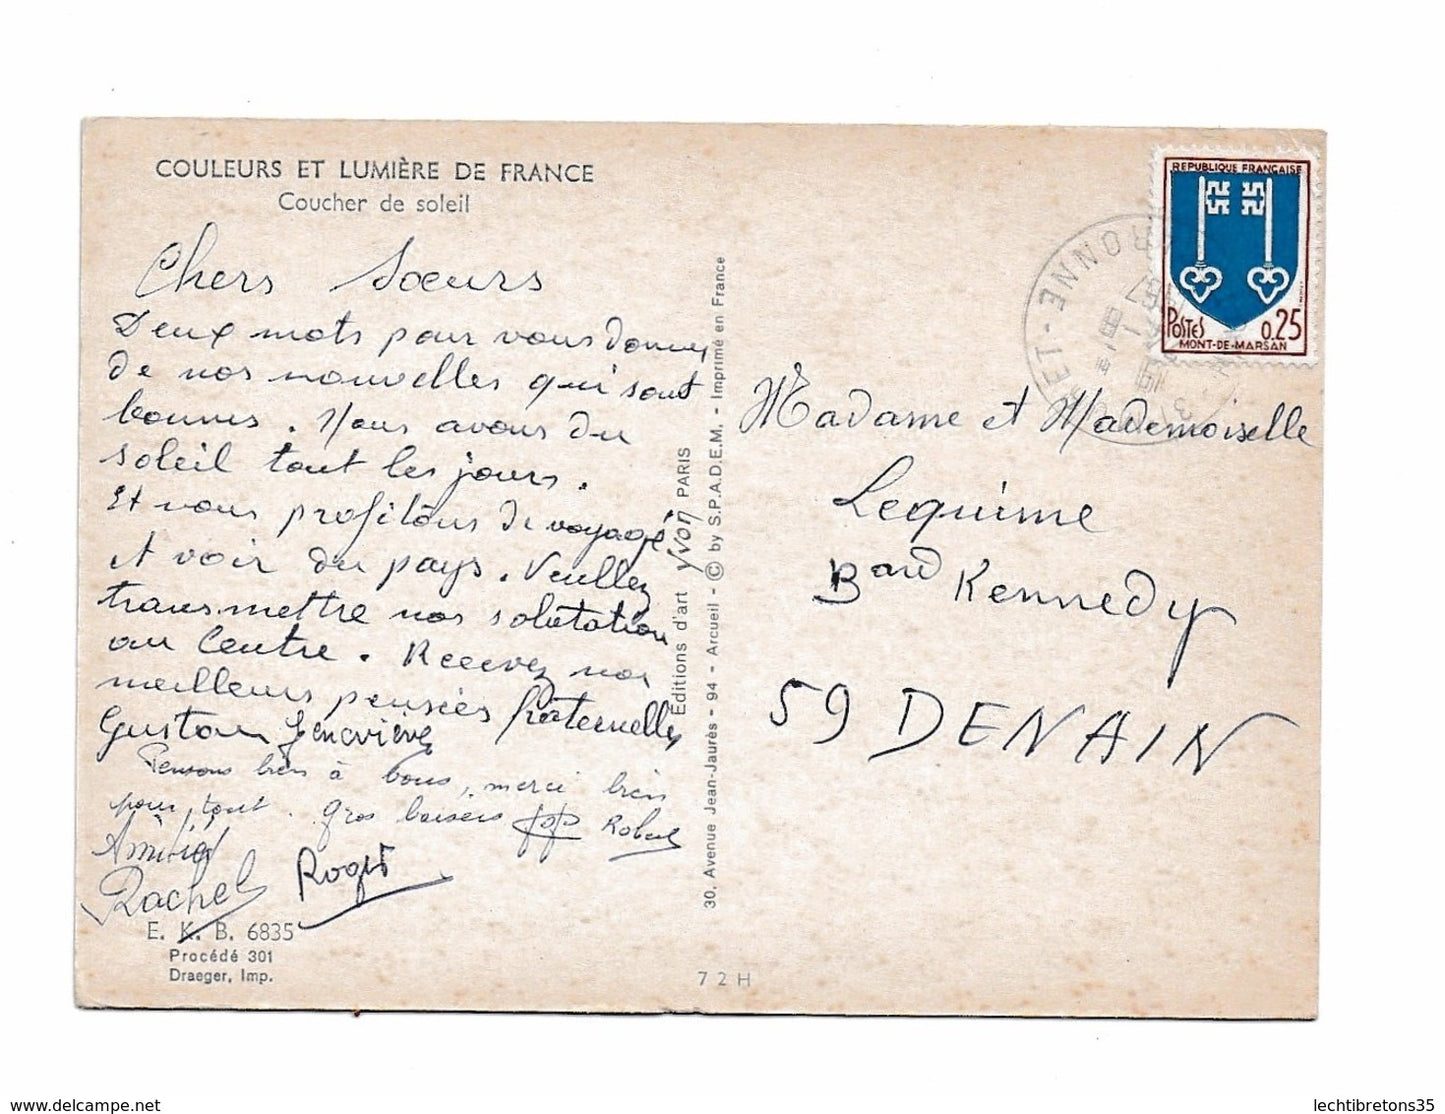 COULEURS ET LUMIÈRE DE FRANCE
Coucher de soleil
Chers Sœurs
Deux mots pour vous donner
de nos nouvelles qui sont
bonnes. Nous avons du
soleil tout les jours.
Et nous profitons de voyagé
et voir du pays. Veuillez
transmettre nos salutation
au Centre. Recevez nos
meilleurs pensées fraternelles
Gustave Geneviève
Pensons bien à vous, merci bien
pour tout. gros baisers Robert
Amitié
Rachel Roger
E. K. B. 6835
Procédé 301
Draeger, Imp.
Éditions d'art yvon PARIS
30, Avenue Jean-Jaurès - 94 - Arcueil - © by S.P.A.D.E.M. - Imprimé en France
72H
REPUBLIQUE FRANÇAISE
POSTES 0.25
MONT-DE-MARSAN
ET-
Madame et Mademoiselle
Lequime
Bard Kennedy
59 DENAIN
delcampe.net
lechtibretons35